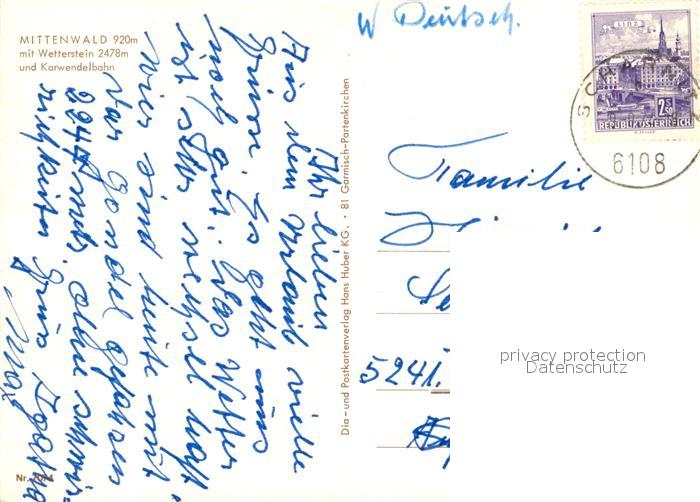 MITTENWALD 920m
mit Wetterstein 2478m
und Karwendelbahn
Ihr lieben
Aus dem Urlaub viele
Grüsse. Es geht uns
noch gut. Das Wetter
ist sehr wechselhaft
wir sind heute mit
der Gondel gefahren
2244 mtr. ohne schwie-
richkeiten Grüs Agatha
Max
Dia- und Postkartenverlag Hans Huber KG. · 81 Garmisch-Partenkirchen
W Deutsch.
LINZ
2.50
REPUBLIK ÖSTERREICH
SCHA
6108
Familie
5241
privacy protection
Datenschutz